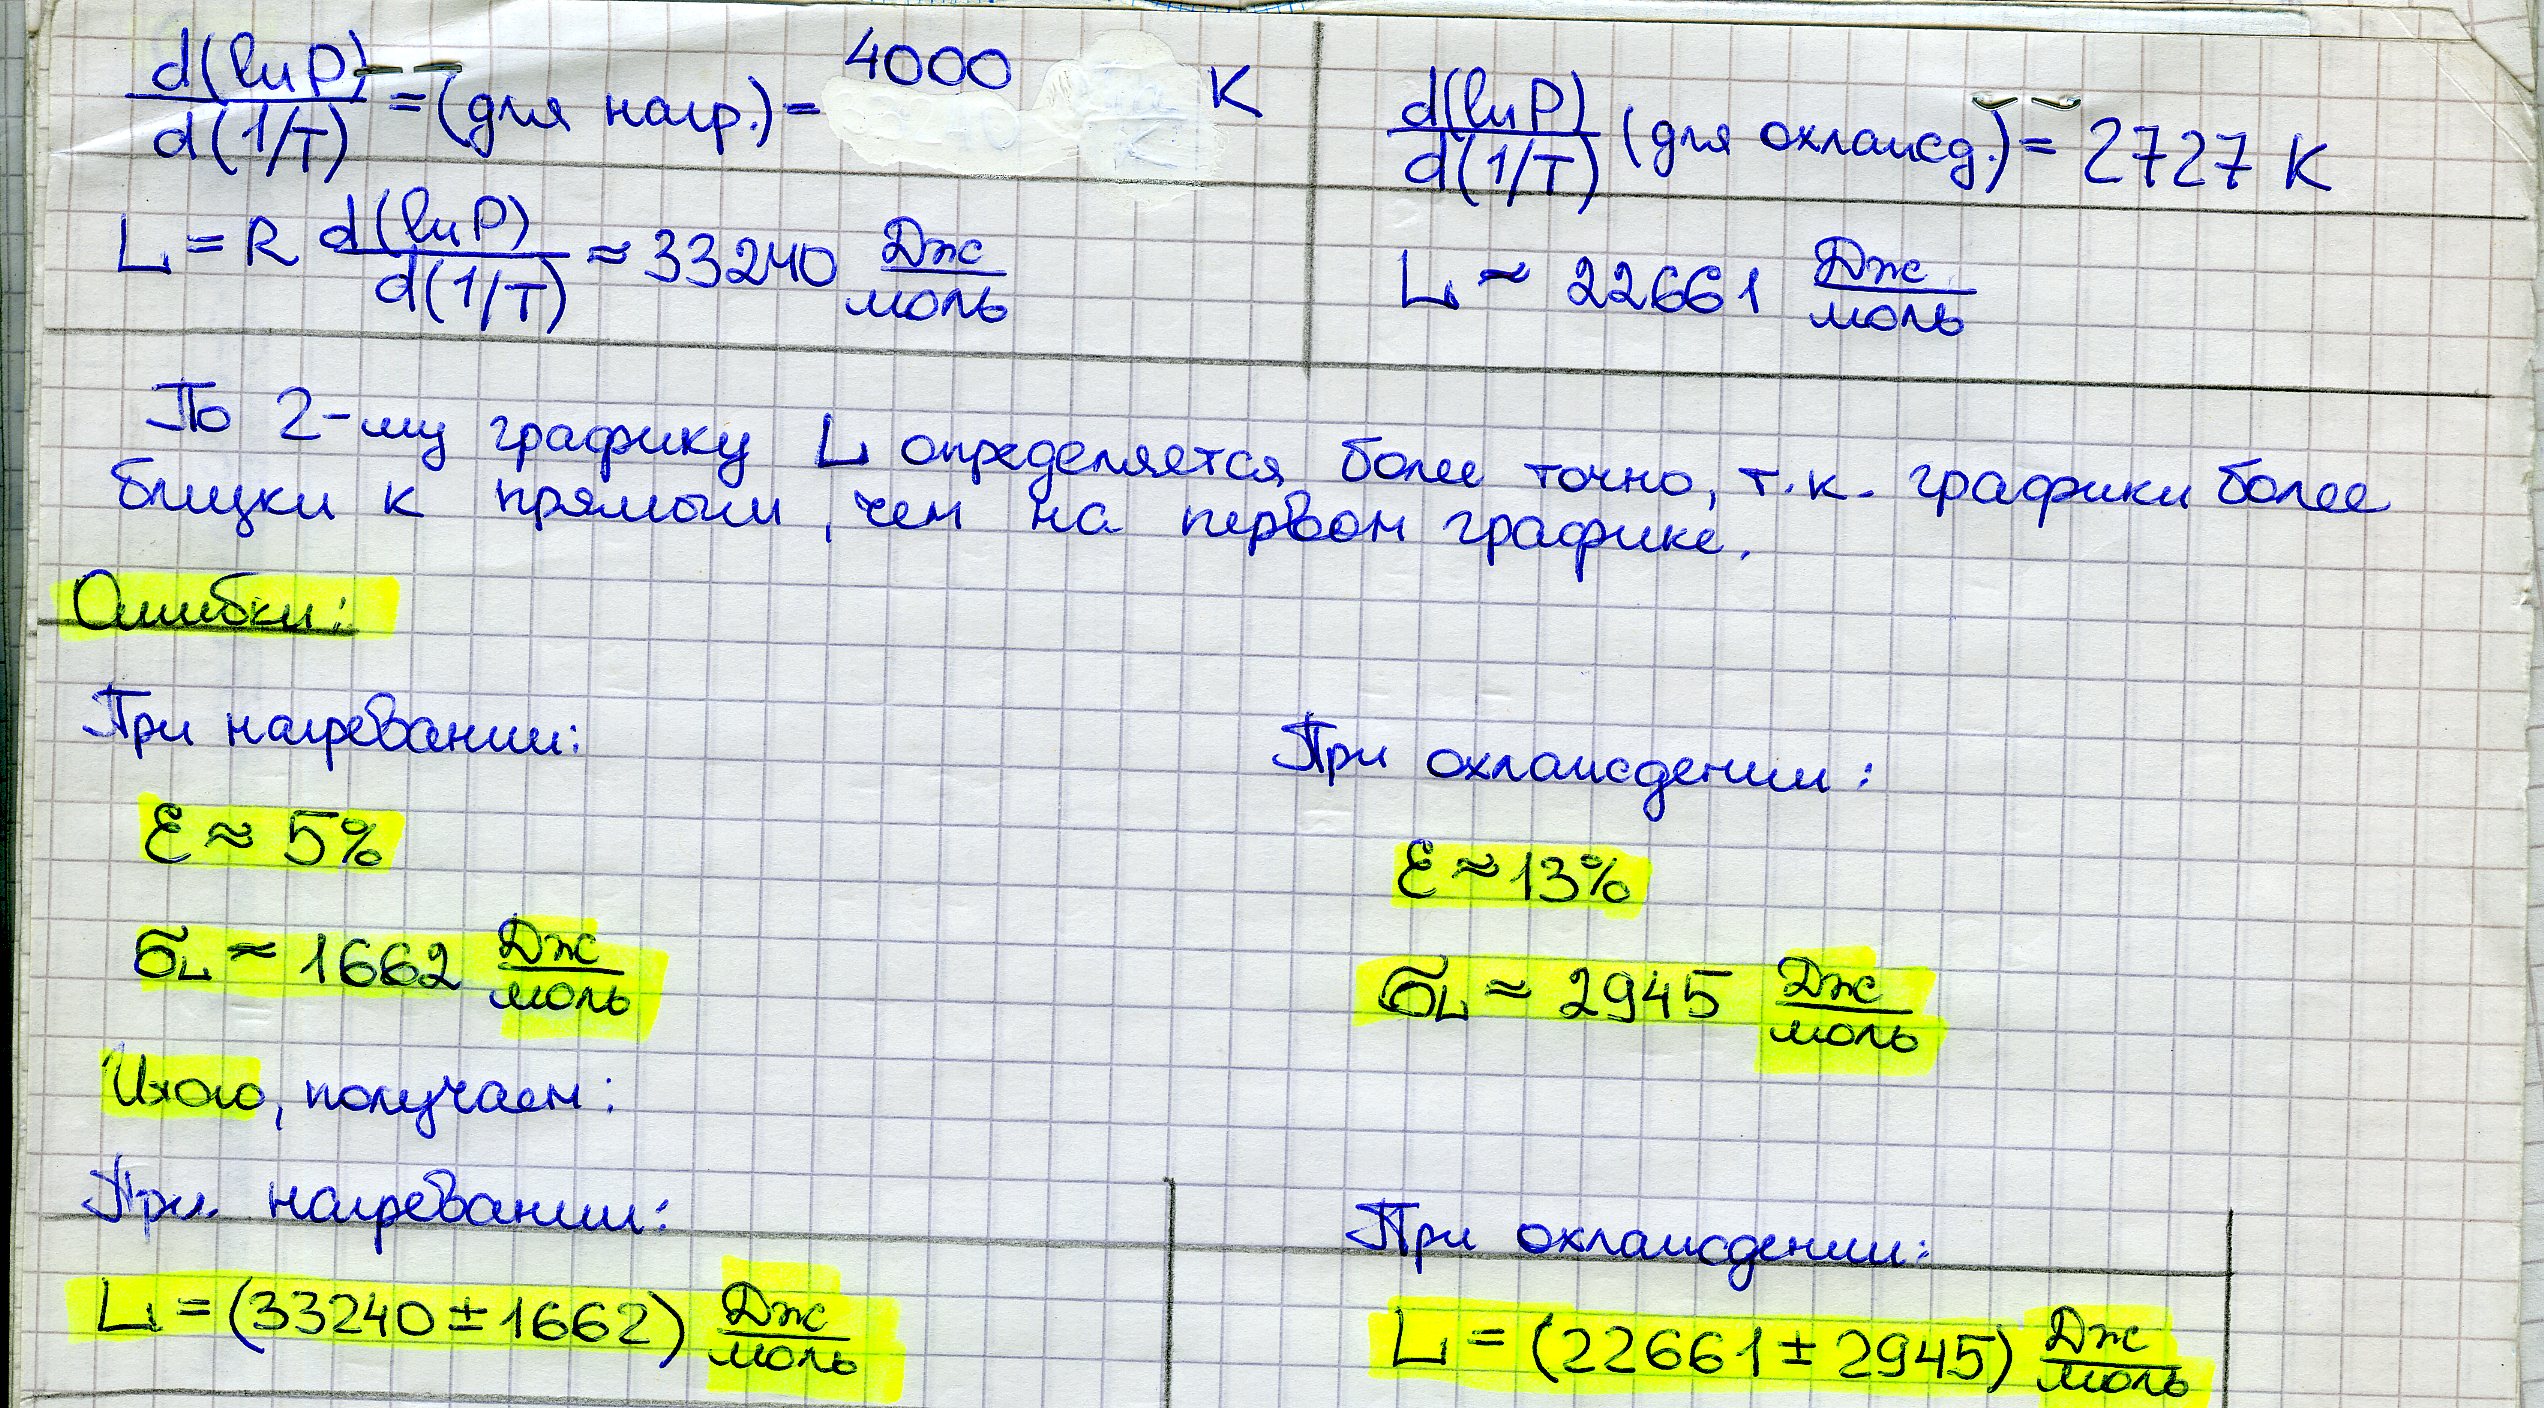 d(ln P)/d(1/T) = (для нагр.) = 4000 K
d(ln P)/d(1/T) (для охлажд.) = 2727 K
L = R d(ln P)/d(1/T) ≈ 33240 Дж/моль
L ≈ 22661 Дж/моль
По 2-му графику L определяется более точно, т.к. графики более
близки к прямым, чем на первом графике.
Ошибки:
При нагревании:
При охлаждении:
ε ≈ 5%
ε ≈ 13%
σL ≈ 1662 Дж/моль
σL ≈ 2945 Дж/моль
Итого, получаем:
При нагревании:
При охлаждении:
L = (33240 ± 1662) Дж/моль
L = (22661 ± 2945) Дж/моль